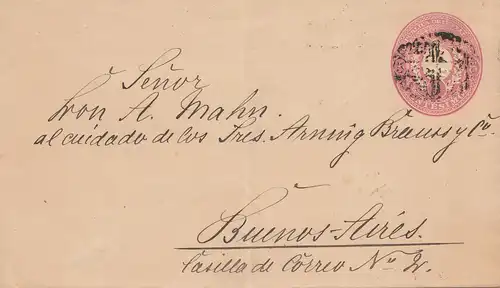 Señor
Don A. Mahn.
al cuidado de los Sres. Arning Brauss y Ca.
Buenos-Aires.
Casilla de Correo No 2.